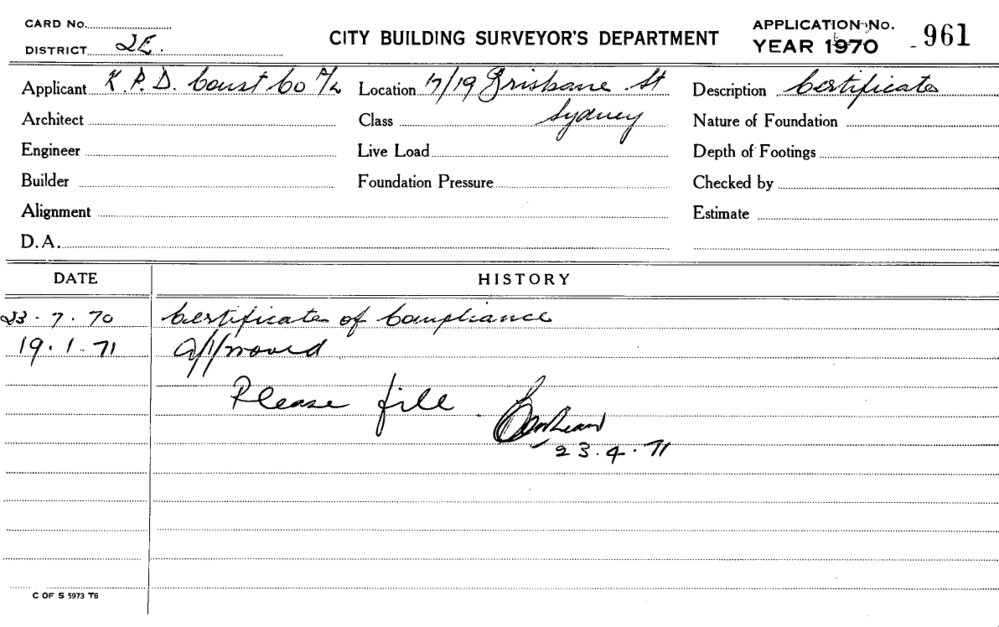 CARD No.
DISTRICT 2E.
CITY BUILDING SURVEYOR'S DEPARTMENT
APPLICATION No. 961
YEAR 1970
Applicant K.P.D. Const Co P/L Location 17/19 Brisbane St Description Certificate
Architect Class Sydney Nature of Foundation
Engineer Live Load Depth of Footings
Builder Foundation Pressure Checked by
Alignment Estimate
D.A.
DATE HISTORY
23.7.70 Certificate of Compliance
19.1.71 Approved
Please file.
23.4.71
C OF S 5973 T6